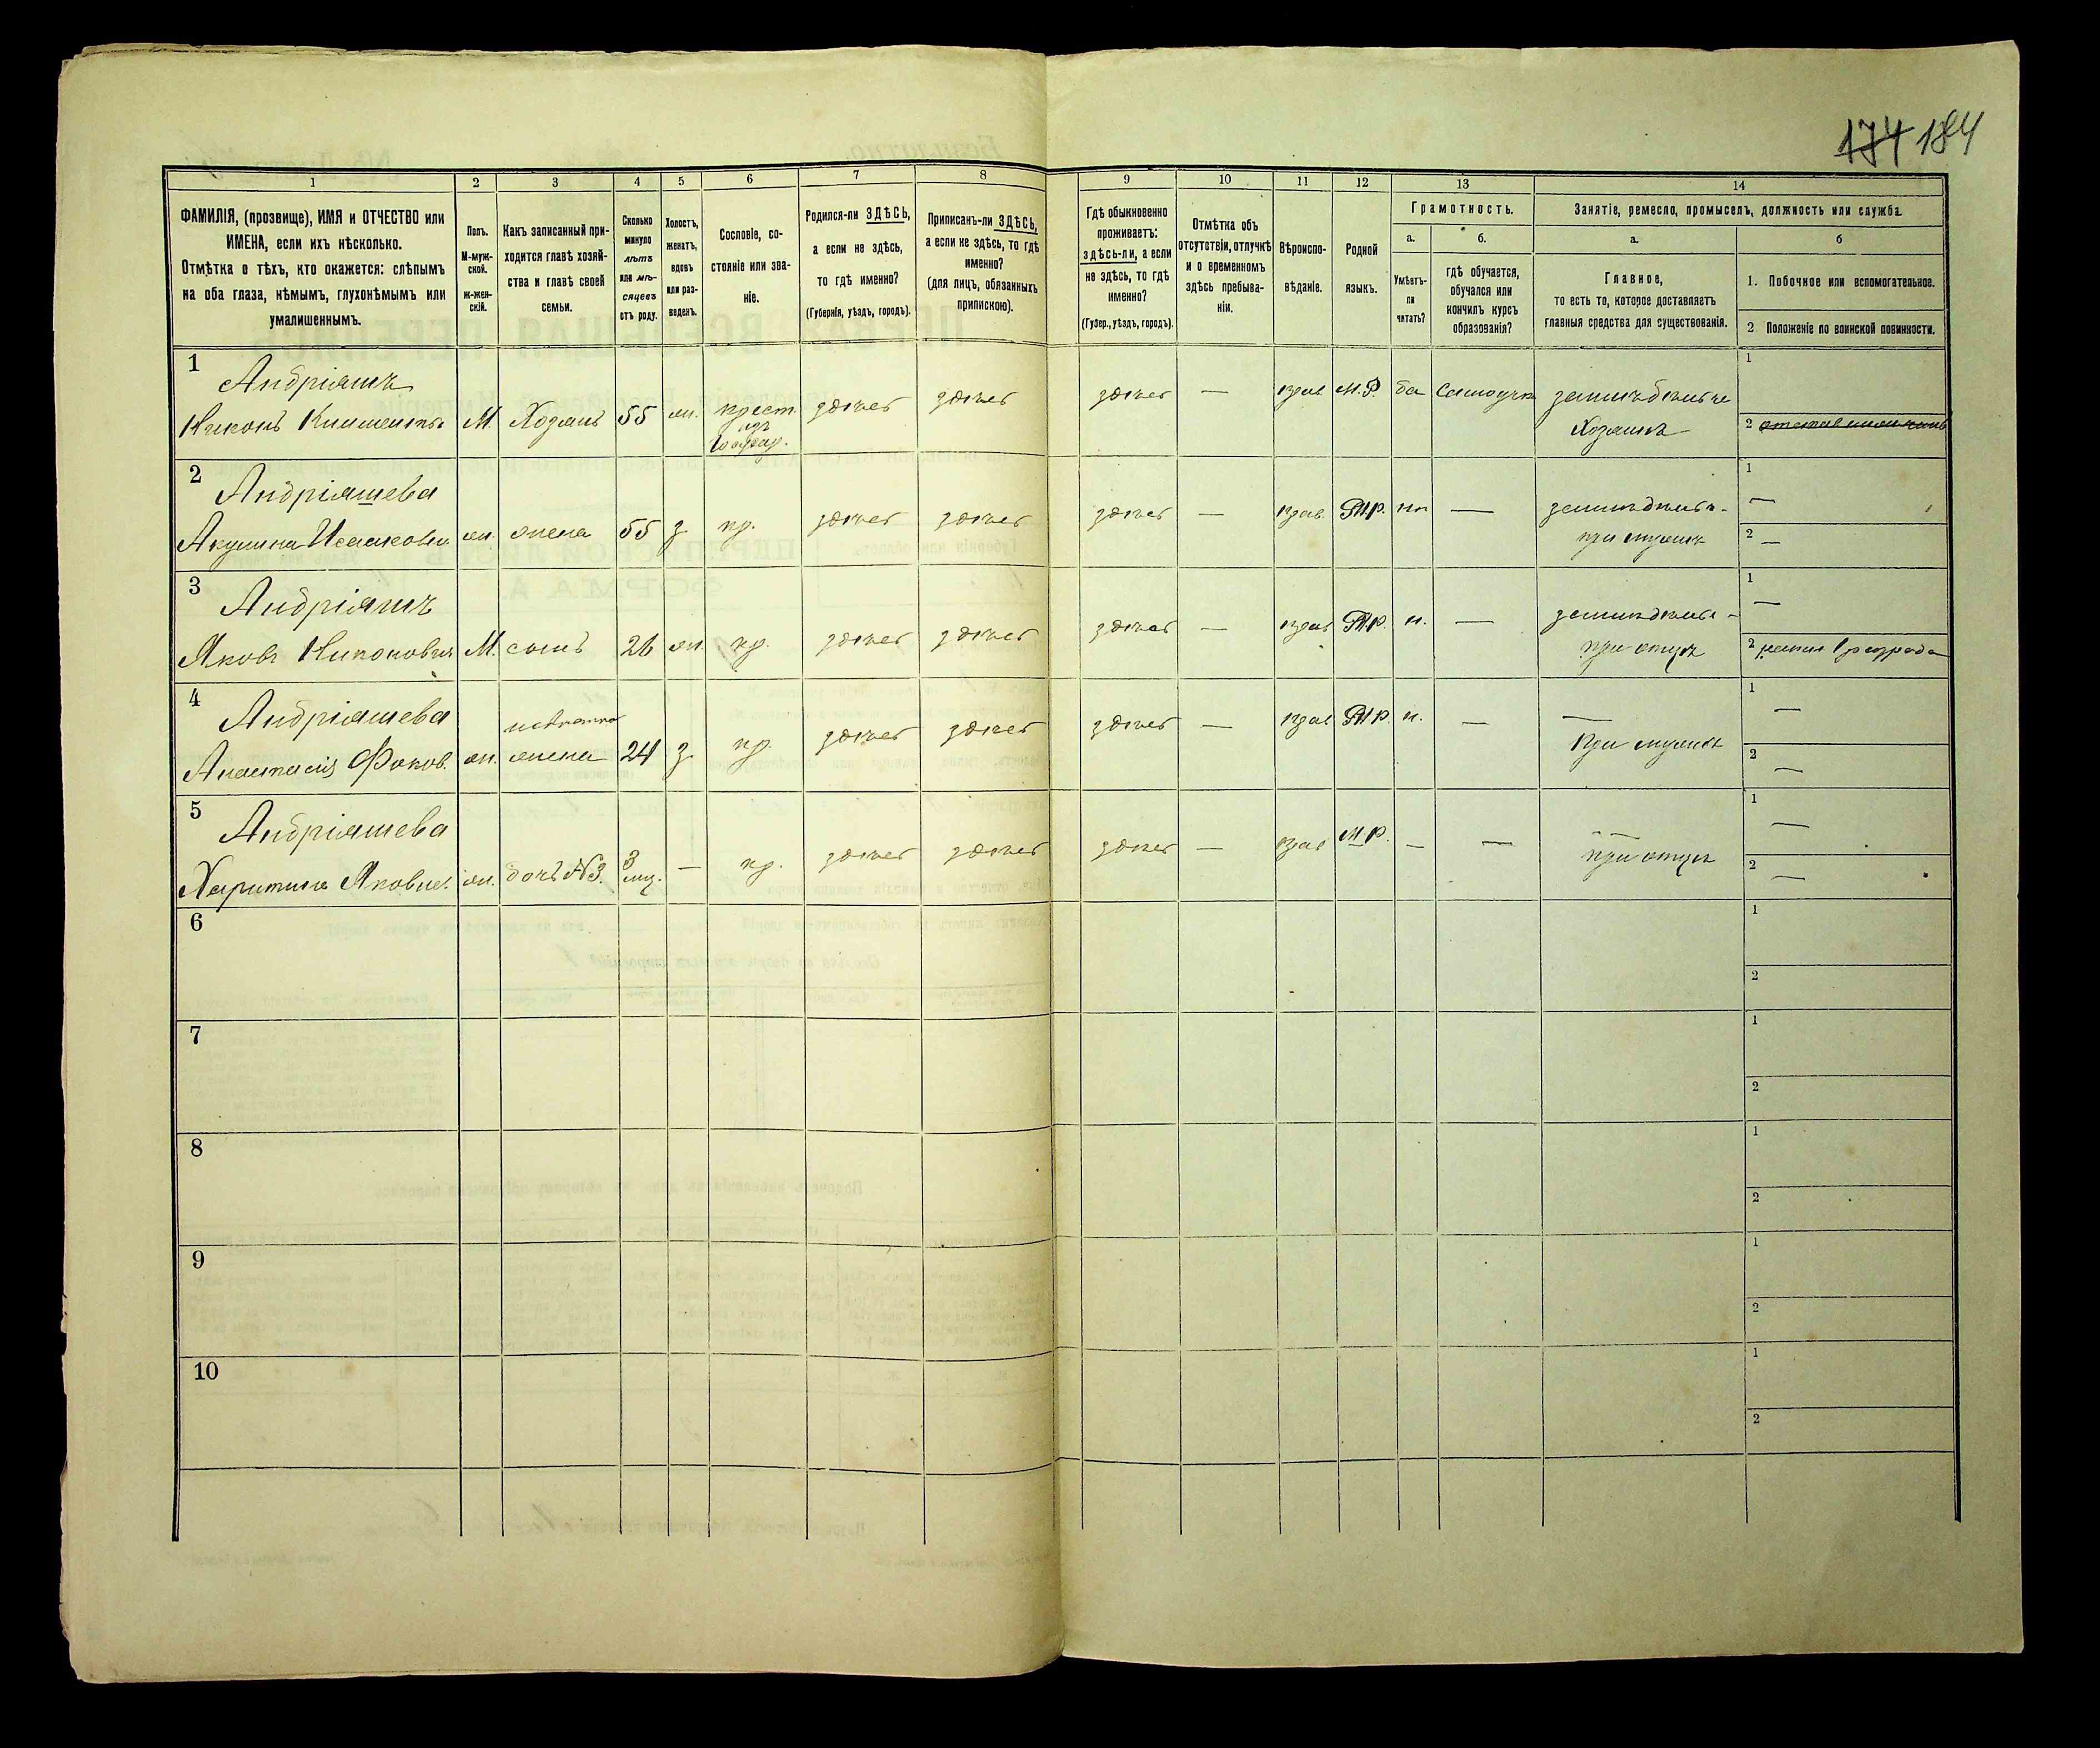 174 184
1 2 3 4 5 6 7 8 9 10 11 12 13 14
ФАМИЛІЯ, (прозвище), ИМЯ и ОТЧЕСТВО или
ИМЕНА, если ихъ нѣсколько.
Отмѣтка о тѣхъ, кто окажется: слѣпымъ
на оба глаза, нѣмымъ, глухонѣмымъ или
умалишеннымъ.
Полъ.
М-муж-
ской.
ж-жен-
скій.
Какъ записанный при-
ходится главѣ хозяй-
ства и главѣ своей
семьи.
Сколько
минуло
лѣтъ
или мѣ-
сяцевъ
отъ роду.
Холостъ,
женатъ,
вдовъ
или раз-
веденъ.
Сословіе, со-
стояніе или зва-
ніе.
Родился-ли ЗДѢСЬ,
а если не здѣсь,
то гдѣ именно?
(Губернія, уѣздъ, городъ).
Приписанъ-ли ЗДѢСЬ,
а если не здѣсь, то гдѣ
именно?
(для лицъ, обязанныхъ
припискою).
Гдѣ обыкновенно
проживаетъ:
здѣсь-ли, а если
не здѣсь, то гдѣ
именно?
(Губер., уѣздъ, городъ).
Отмѣтка объ
отсутствіи, отлучкѣ
и о временномъ
здѣсь пребыва-
ніи.
Вѣроиспо-
вѣданіе.
Родной
языкъ.
Грамотность.
а.
Умѣетъ-
ли
читать?
б.
гдѣ обучается,
обучался или
кончилъ курсъ
образованія?
Занятіе, ремесло, промыселъ, должность или служба.
а.
Главное,
то есть то, которое доставляетъ
главныя средства для существованія.
б
1. Побочное или вспомогательное.
2 Положеніе по воинской повинности.
1 Андріяшъ 1
Никонъ М. Хозяинъ 55 жн. крест. здѣсь здѣсь здѣсь — прав М.Р. да земледѣлие
Хозяинъ 2
2 Андріяшева 1 —
Акулина Исааковна жн. жена 55 з кр. здѣсь здѣсь здѣсь — прав. М.Р. — земледѣлие
при мужѣ 2 —
3 Андріяшъ 1 —
Яковъ Никоновичъ М. сынъ 26 жн. кр. здѣсь здѣсь здѣсь — прав М.Р. н. — земледѣлие
при отцѣ 2 разряда
4 Андріяшева 1 —
невѣстка
Анастасія Фоков. жн. жена 24 з кр. здѣсь здѣсь здѣсь — прав М.Р. н. — —
при мужѣ 2 —
5 Андріяшева 1 —
Харитина Яковле. жн. дочь №3. 3 мц. — кр. здѣсь здѣсь здѣсь — прав М.Р. — — —
при отцѣ 2 —
6 1
2
7 1
2
8 1
2
9 1
2
10 1
2